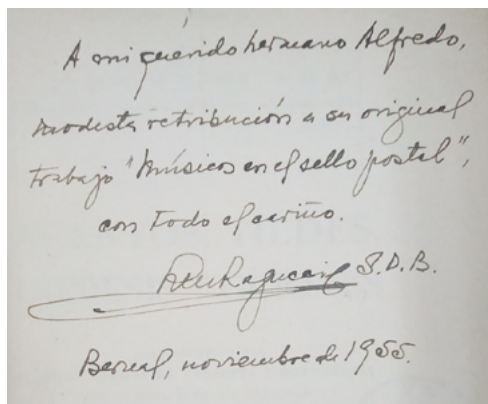 A mi querido hermano Alfredo,
modesta retribución a su original
trabajo "Músicos en el sello postal",
con todo el cariño.
Ragucci S.D.B.
Bernal, noviembre de 1955.